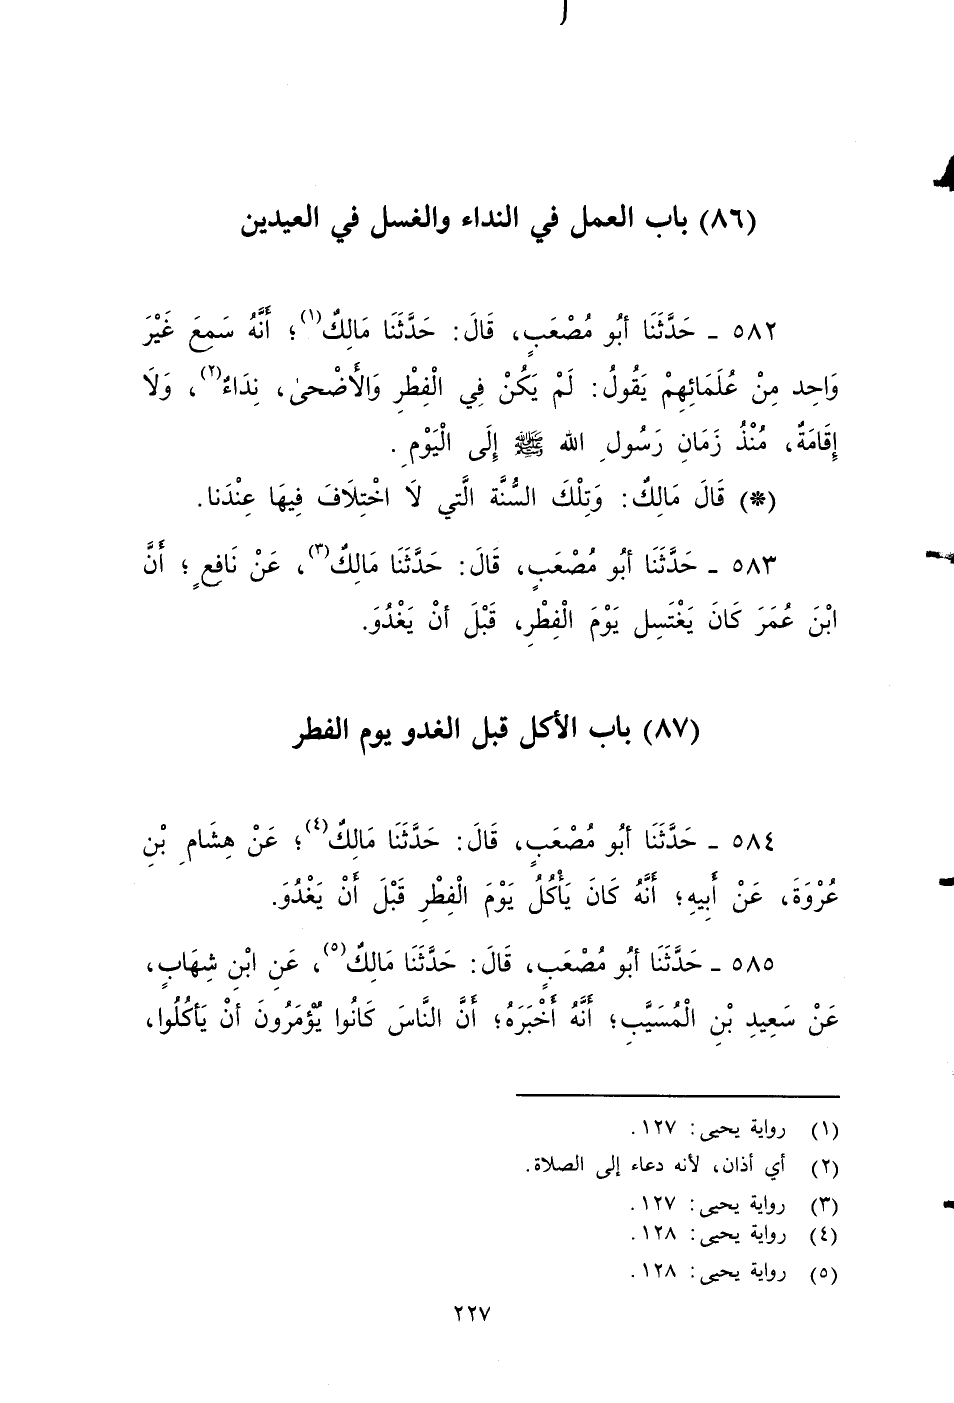 (٨٦) باب العمل في النداء والغسل في العيدين
٥٨٢ ـ حَدَّثَنَا أبُو مُصْعَبٍ، قَالَ: حَدَّثَنَا مَالِكٌ(١)؛ أَنَّهُ سَمِعَ غَيْرَ
وَاحِد مِنْ عُلَمَائِهِمْ يَقُولُ: لَمْ يَكُنْ فِي الْفِطْرِ وَالأَضْحىٰ، نِدَاءٌ(٢)، وَلَا
إِقَامَةٌ، مُنْذُ زَمَانِ رَسُولِ الله ﷺ إِلَى الْيَوْمِ.
(*) قَالَ مَالِكٌ: وَتِلْكَ السُّنَّة الَّتي لَا اخْتِلَافَ فِيهَا عِنْدَنا.
٥٨٣ ـ حَدَّثَنَا أبُو مُصْعَبٍ، قَالَ: حَدَّثَنَا مَالِكٌ(٣)، عَنْ نَافِعٍ؛ أَنَّ
ابْنَ عُمَرَ كَانَ يَغْتَسِل يَوْمَ الْفِطْرِ، قَبْلَ أنْ يَغْدُوَ.
(٨٧) باب الأكل قبل الغدو يوم الفطر
٥٨٤ ـ حَدَّثَنَا أبُو مُصْعَبٍ، قَالَ: حَدَّثَنَا مَالِكٌ(٤)؛ عَنْ هِشَامِ بْنِ
عُرْوَةَ، عَنْ أَبِيهِ؛ أَنَّهُ كَانَ يَأْكُلُ يَوْمَ الْفِطْرِ قَبْلَ أَنْ يَغْدُوَ.
٥٨٥ ـ حَدَّثَنَا أبُو مُصْعَبٍ، قَالَ: حَدَّثَنَا مَالِكٌ(٥)، عَنِ ابْنِ شِهَابٍ،
عَنْ سَعِيدِ بْنِ الْمُسَيَّبِ؛ أَنَّهُ أَخْبَرَهُ؛ أَنَّ النَّاسَ كَانُوا يُؤْمَرُونَ أنْ يَأكُلُوا،
(١) رواية يحيى: ١٢٧.
(٢) أي أذان، لأنه دعاء إلى الصلاة.
(٣) رواية يحيى: ١٢٧.
(٤) رواية يحيى: ١٢٨.
(٥) رواية يحيى: ١٢٨.
٢٢٧